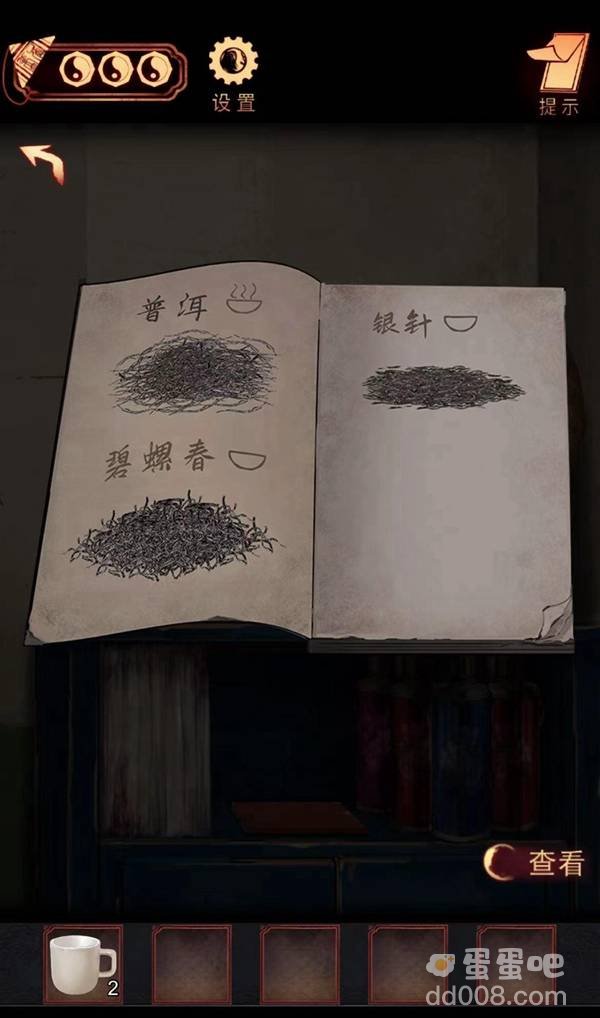 设置
提示
普洱
银针
碧螺春
查看
2
蛋蛋吧
dd008.com